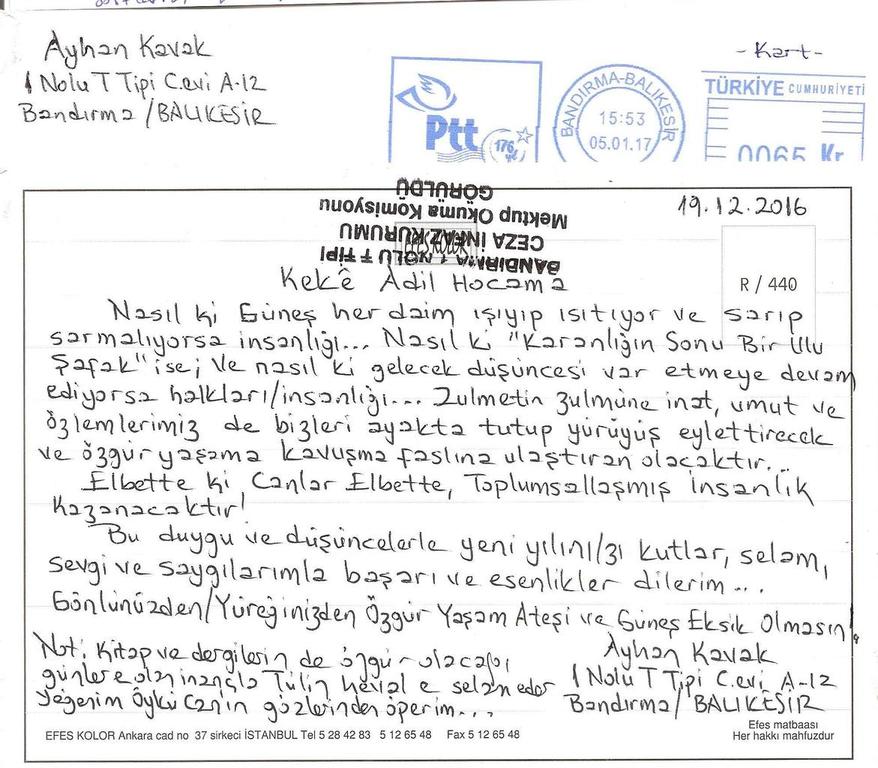 Ayhan Kavak
1 Nolu T Tipi C.evi A-12
Bandırma / BALIKESİR
- Kart -
Ptt
176
yıl
BANDIRMA-BALIKESİR
15:53
05.01.17
TÜRKİYE CUMHURİYETİ
0065 Kr
GÖRÜLDÜ
Mektup Okuma Komisyonu
CEZA İNFAZ KURUMU
BANDIRMA 1 NOLU T TİPİ
EFES KOLOR
19.12.2016
R / 440
Kekê Adil Hocama
Nasıl ki Güneş her daim ışıyıp ısıtıyor ve sarıp
sarmalıyorsa insanlığı... Nasıl ki "Karanlığın Sonu Bir Ulu
Şafak" ise; Ve nasıl ki gelecek düşüncesi var etmeye devam
ediyorsa halkları/insanlığı... Zulmetin zulmüne inat, umut ve
özlemlerimiz de bizleri ayakta tutup yürüyüş eylettirecek
ve özgür yaşama kavuşma faslına ulaştıran olacaktır...
Elbette ki Canlar Elbette, Toplumsallaşmış İnsanlık
Kazanacaktır!
Bu duygu ve düşüncelerle yeni yılını/zı kutlar, selam,
sevgi ve saygılarımla başarı ve esenlikler dilerim...
Gönlünüzden/Yüreğinizden Özgür Yaşam Ateşi ve Güneş Eksik Olmasın!
Not: Kitap ve dergilerin de özgür olacağı
günlere olan inançla Tülin heval e selam eder
Yeğenim Öykü Can'ın gözlerinden öperim...
Ayhan Kavak
1 Nolu T Tipi C.evi A-12
Bandırma / BALIKESİR
EFES KOLOR Ankara cad no 37 sirkeci İSTANBUL Tel 5 28 42 83 5 12 65 48 Fax 5 12 65 48
Efes matbaası
Her hakkı mahfuzdur